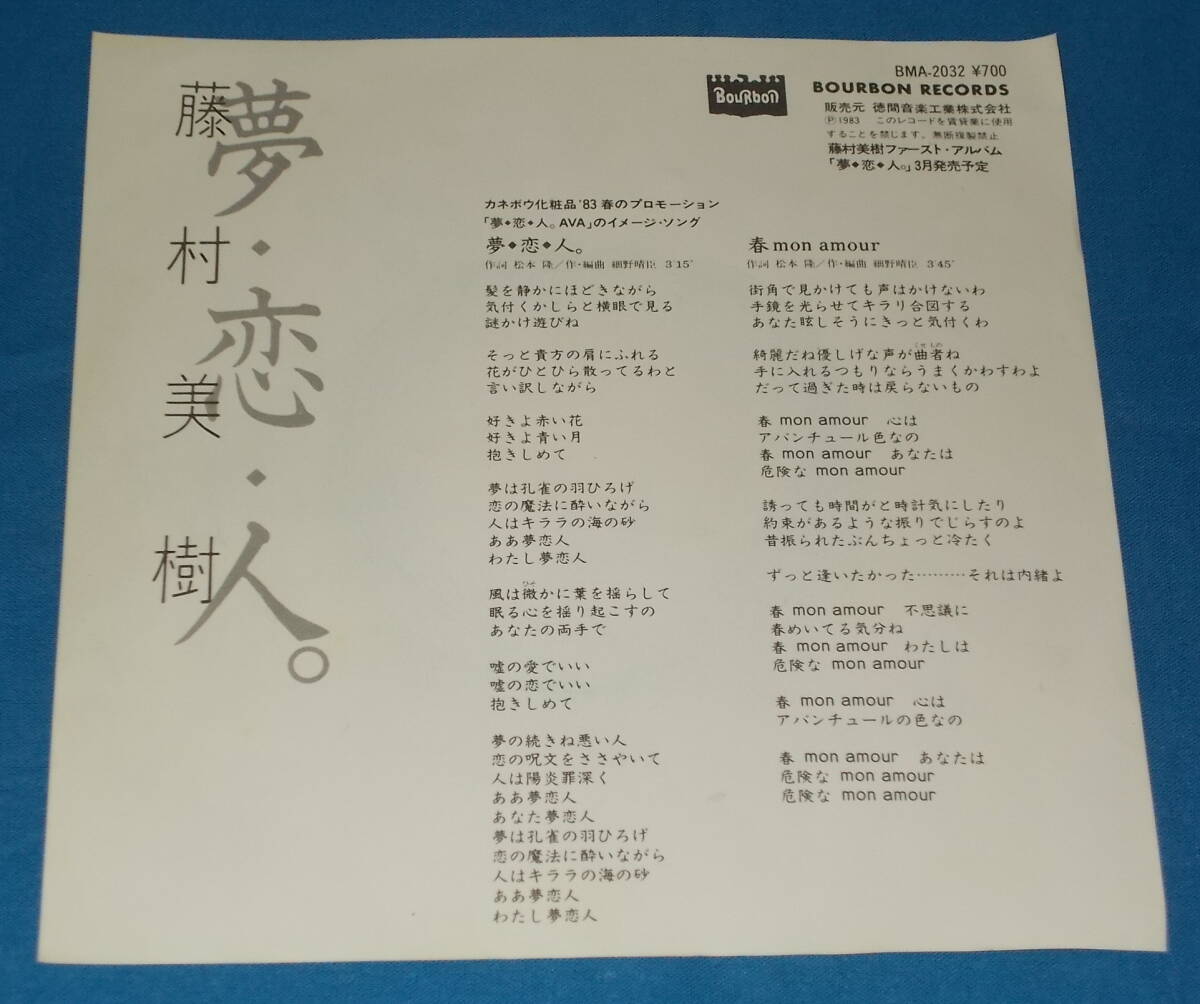 夢・恋・人。
藤村美樹
BOURBON
BMA-2032 ¥700
BOURBON RECORDS
販売元 徳間音楽工業株式会社
Ⓟ1983 このレコードを賃貸業に使用
することを禁じます。無断複製禁止
藤村美樹ファースト・アルバム
「夢◆恋◆人。」3月発売予定
カネボウ化粧品'83 春のプロモーション
「夢◆恋◆人。AVA」のイメージ・ソング
夢◆恋◆人。
作詞 松本 隆／作・編曲 細野晴臣 3'15"
髪を静かにほどきながら
気付くかしらと横眼で見る
謎かけ遊びね
そっと貴方の肩にふれる
花がひとひら散ってるわと
言い訳しながら
好きよ赤い花
好きよ青い月
抱きしめて
夢は孔雀の羽ひろげ
恋の魔法に酔いながら
人はキララの海の砂
ああ夢恋人
わたし夢恋人
風は微かに葉を揺らして
ひそ
眠る心を揺り起こすの
あなたの両手で
嘘の愛でいい
嘘の恋でいい
抱きしめて
夢の続きね悪い人
恋の呪文をささやいて
人は陽炎罪深く
ああ夢恋人
あなた夢恋人
夢は孔雀の羽ひろげ
恋の魔法に酔いながら
人はキララの海の砂
ああ夢恋人
わたし夢恋人
春 mon amour
作詞 松本 隆／作・編曲 細野晴臣 3'45"
街角で見かけても声はかけないわ
手鏡を光らせてキラリ合図する
あなた眩しそうにきっと気付くわ
綺麗だね優しげな声が曲者ね
くせもの
手に入れるつもりならうまくかわすわよ
だって過ぎた時は戻らないもの
春 mon amour 心は
アバンチュール色なの
春 mon amour あなたは
危険な mon amour
誘っても時間がと時計気にしたり
約束があるような振りでじらすのよ
昔振られたぶんちょっと冷たく
ずっと逢いたかった………それは内緒よ
春 mon amour 不思議に
春めいてる気分ね
春 mon amour わたしは
危険な mon amour
春 mon amour 心は
アバンチュールの色なの
春 mon amour あなたは
危険な mon amour
危険な mon amour